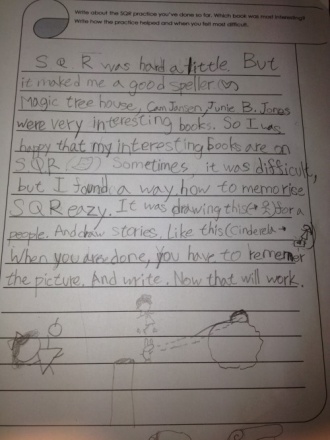 Write about the SQR practice you've done so far. Which book was most interesting?
Write how the practice helped and when you felt most difficult.
SQR was hard a little. But
it maked me a good speller
Magic tree house, Cam Jansen, Junie B. Jones
were very interesting books. So I was
happy that my interesting books are on
SQR Sometimes, it was difficult,
but I found a way how to memorise
SQR eazy. It was drawing this→ for a
people. And draw stories. Like this (Cinderela→
When you are done, you have to remember
the picture. And write. Now that will work.